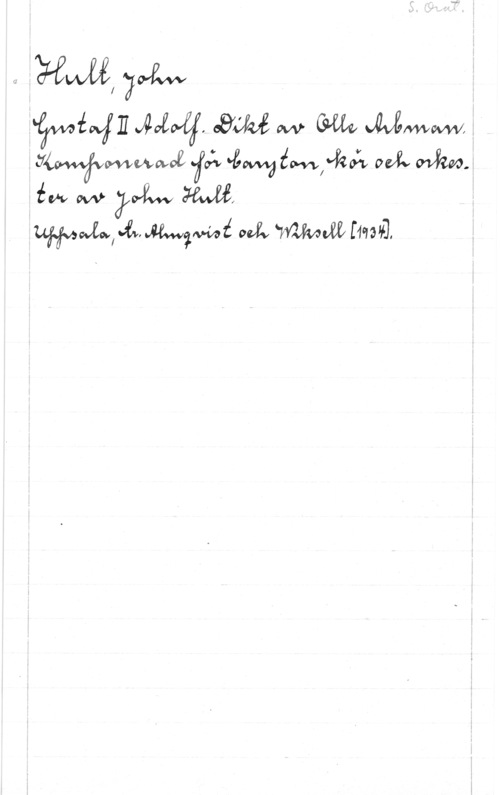 S. Orat.
Hult, John
Gustaf II Adolf. Dikt av Olle Arbman.
Komponerad för baryton, kör och orkes-
ter av John Hult.
Uppsala, tr. Almqvist och Wiksell [1934].